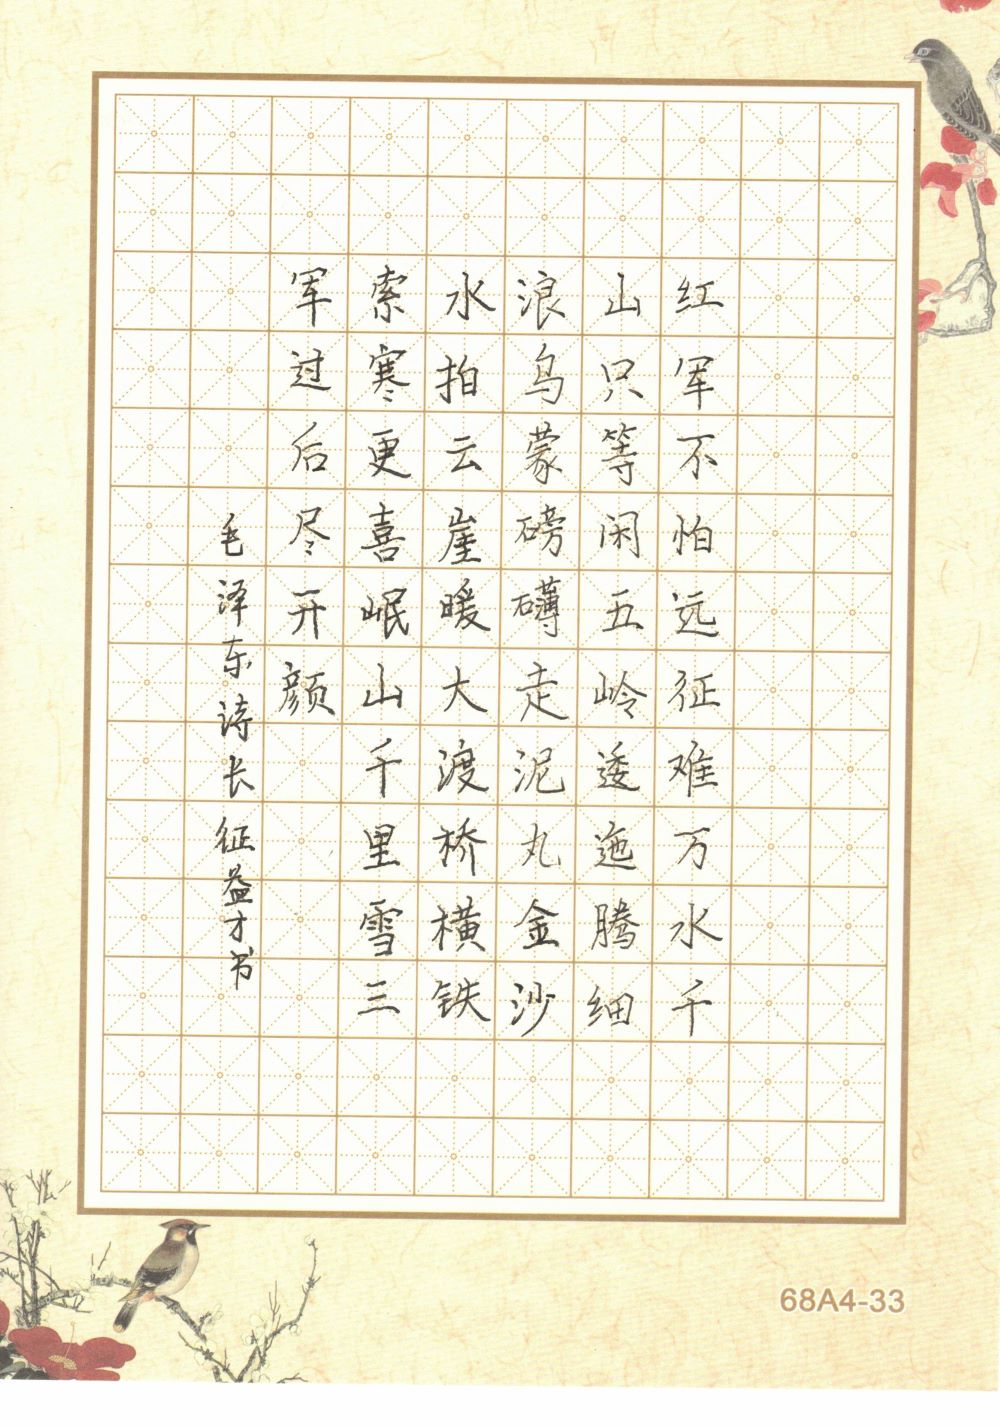 红军不怕远征难万水千
山只等闲五岭逶迤腾细
浪乌蒙磅礴走泥丸金沙
水拍云崖暖大渡桥横铁
索寒更喜岷山千里雪三
军过后尽开颜
毛泽东诗长征益才书
68A4-33